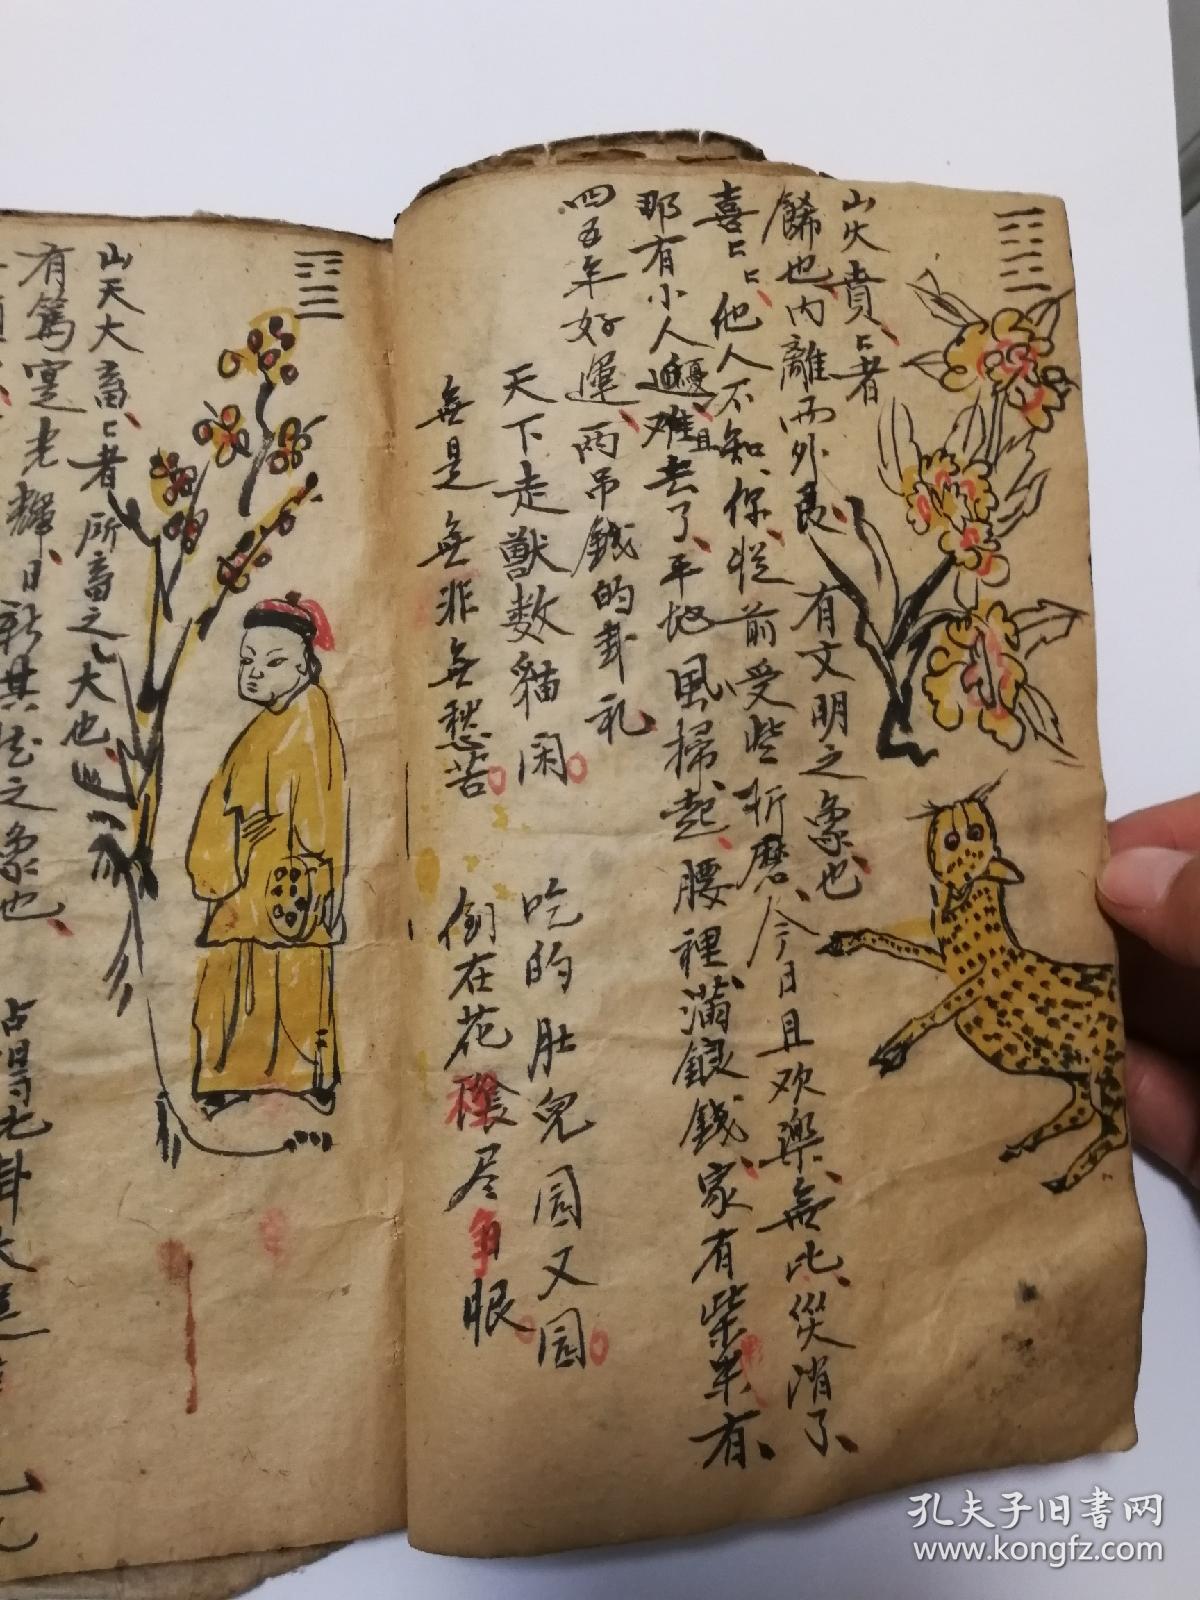 山火賁〻者
餙也内離而外艮有文明之象也
喜〻他人不知你從前受些折磨今日且欢樂無比災消了
那有小人难去了平地風掃起腰裡滿銀錢家有柴米有
四五年好運两吊錢的卦礼
天下走獸数貓闲吃的肚兒圆又园
無是無非無愁苦倒在花陰尽争眼
山天大畜〻者所畜之大也
有篤寔光輝日新其德之象也
孔夫子旧书网
www.kongfz.com